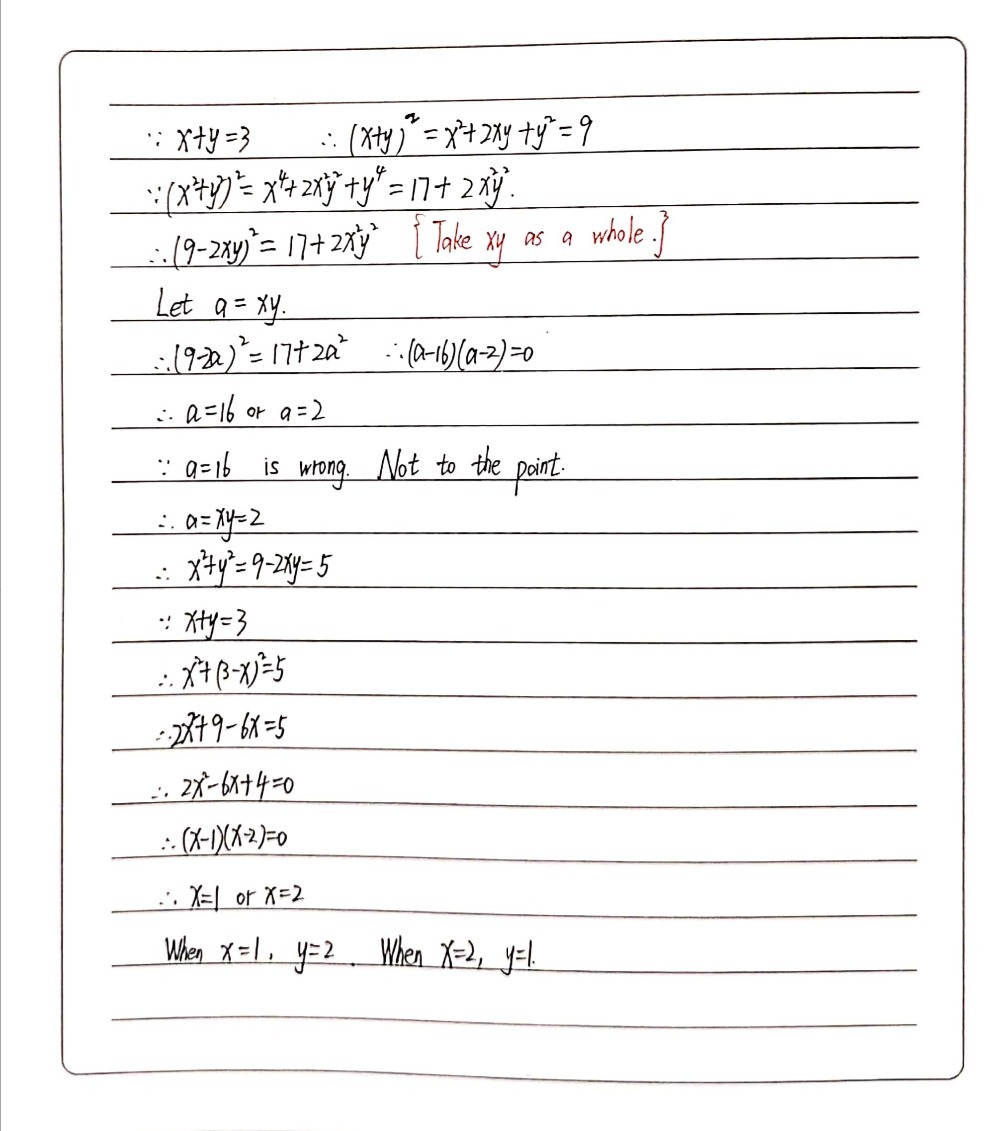 ∵ x+y=3 ∴ (x+y)² = x²+2xy+y² = 9
∵ (x²+y²)² = x⁴+2x²y²+y⁴ = 17+2x²y².
∴ (9-2xy)² = 17+2x²y² {Take xy as a whole.}
Let a = xy.
∴ (9-2a)² = 17+2a² ∴ (a-16)(a-2)=0
∴ a=16 or a=2
∵ a=16 is wrong. Not to the point.
∴ a=xy=2
∴ x²+y²=9-2xy=5
∵ x+y=3
∴ x²+(3-x)²=5
∴ 2x²+9-6x=5
∴ 2x²-6x+4=0
∴ (x-1)(x-2)=0
∴ x=1 or x=2
When x=1, y=2. When x=2, y=1.